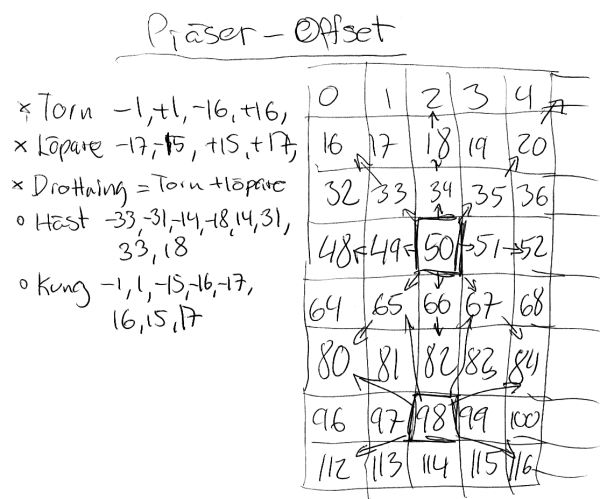 Pjäser - Offset
× Torn -1, +1, -16, +16,
× Löpare -17, -15, +15, +17,
× Drottning = Torn + löpare
o Häst -33, -31, -14, -18, 14, 31,
33, 18
o Kung -1, 1, -15, -16, -17,
16, 15, 17
0 1 2 3 4
16 17 18 19 20
32 33 34 35 36
48 49 50 51 52
64 65 66 67 68
80 81 82 83 84
96 97 98 99 100
112 113 114 115 116